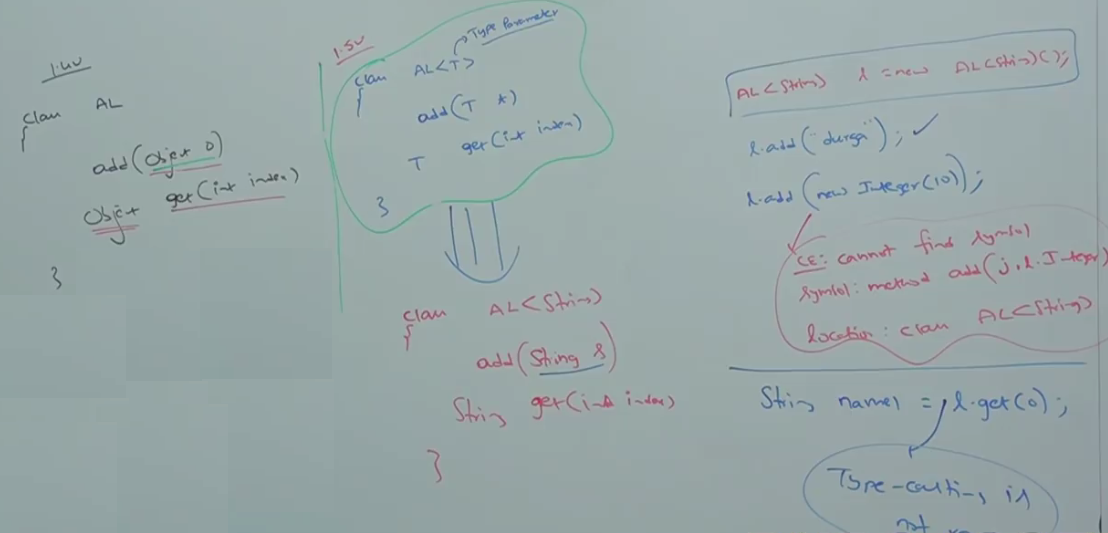 1.4v
class AL
{
add(Object o)
Object get(int index)
}
1.5v
Type Parameter
class AL<T>
{
add(T t)
T get(int index)
}
class AL<String>
{
add(String s)
String get(int index)
}
AL<String> l = new AL<String>();
l.add("durga"); ✓
l.add(new Integer(10));
CE: cannot find symbol
symbol: method add(j.l.Integer)
location: class AL<String>
String name1 = l.get(0);
Type-casting is
not